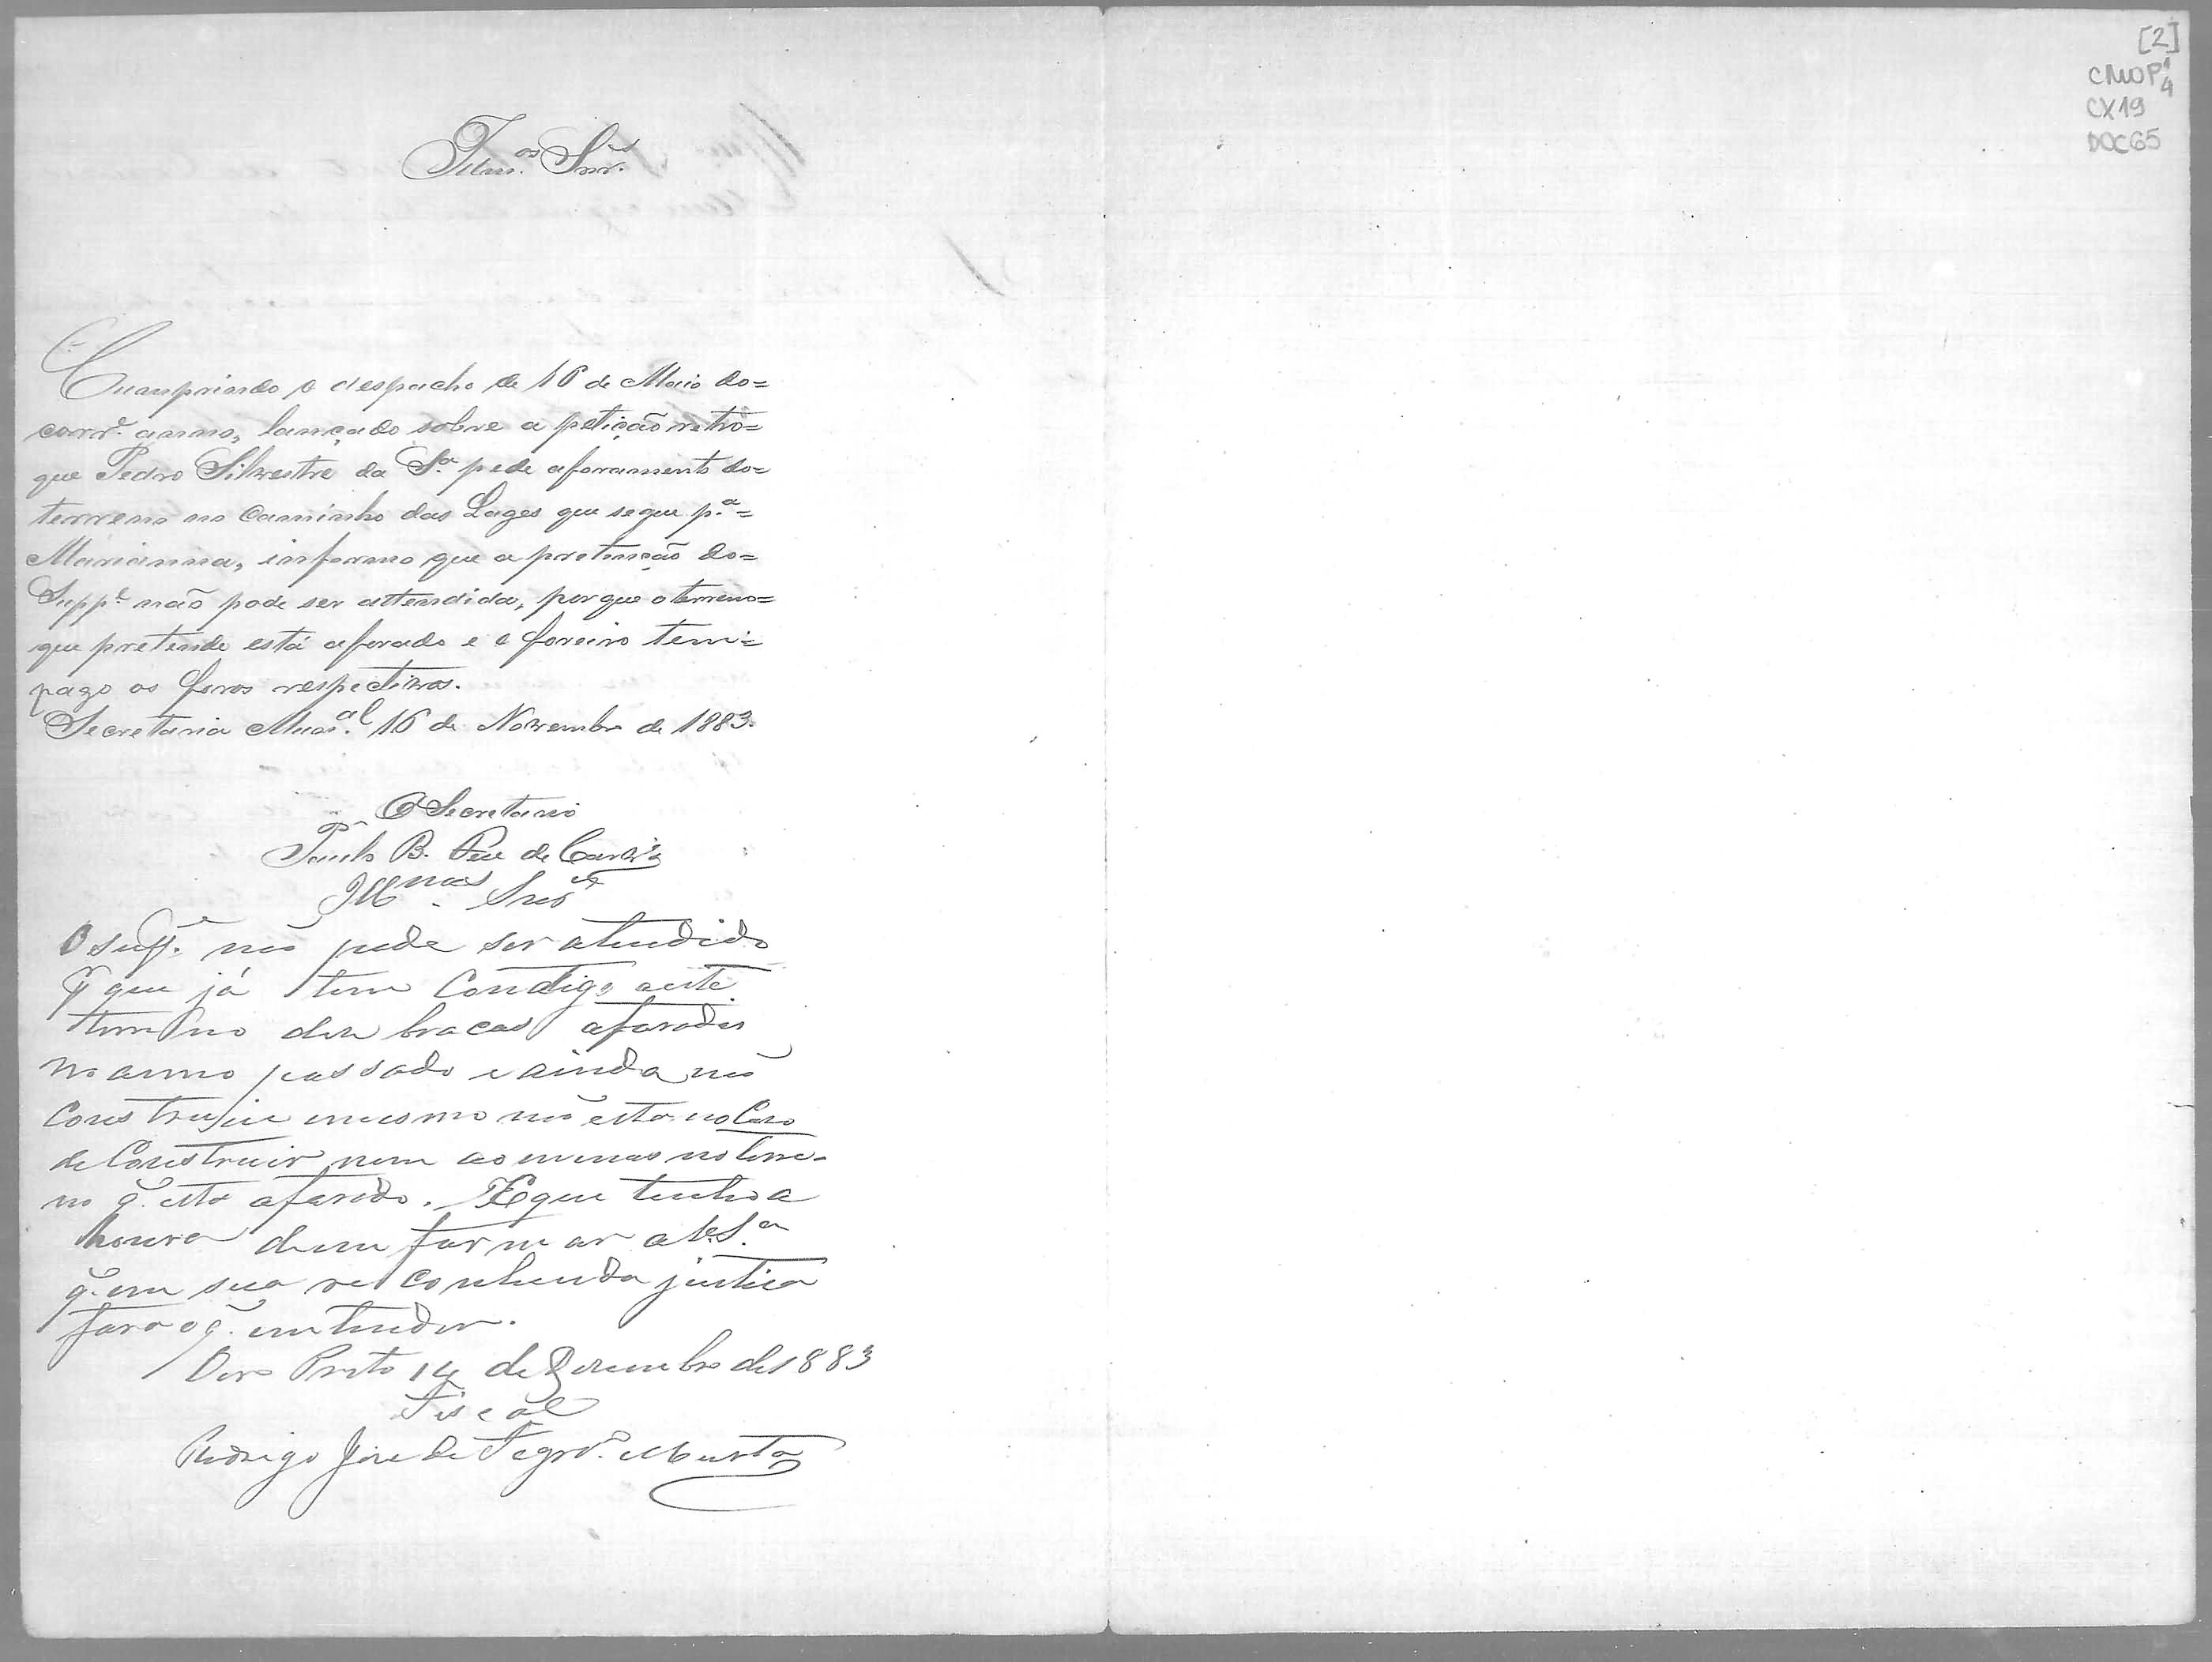 [2]
CMOP 1/4
CX19
DOC65
Illm.os Snr.es
Cumprindo o despacho de 16 de Maio do=
corr.e anno, lançado sobre a petição retro=
que Pedro Silvestre da S.a pede aforamento do=
terreno no Caminho das Lages que segue p.a=
Marianna, informo que a pretenção do=
Supp.e não pode ser attendida, porque o terreno=
que pretende está aforado e o foreiro tem=
pago os foros respectivos.
Secretaria Mun.al 16 de Novembro de 1883.
O Secretario
Paulo B.
Ill.mos Snres
O supp.e não pode ser atendido
p que já tem Contigo a este
terreno des bracas aforados
no anno passado e ainda não
Construiu e mesmo não esta no Caso
de Construir nem ao menos no terre-
no q. esta aforado. He que tenho a
honra de em formar a V.S.a
q. em sua reconhecida justica
fara o q. entender.
Ouro Preto 14 de Dezembro de 1883
Fiscal
Rodrigo José de Figrd.o Murta